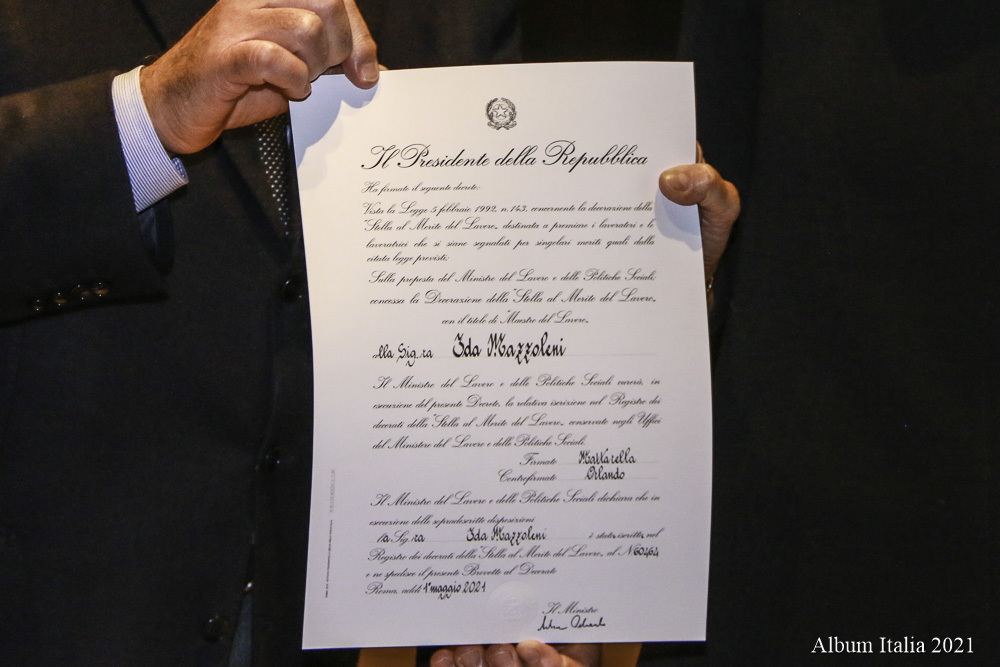 Il Presidente della Repubblica
Ha firmato il seguente decreto:
Vista la Legge 5 febbraio 1992, n. 143, concernente la decorazione della
"Stella al Merito del Lavoro", destinata a premiare i lavoratori e le
lavoratrici che si siano segnalati per singolari meriti quali dalla
citata legge previsti;
Sulla proposta del Ministro del Lavoro e delle Politiche Sociali,
concessa la Decorazione della "Stella al Merito del Lavoro"
con il titolo di "Maestro del Lavoro"
alla Sig.ra Ida Mazzoleni
Il Ministro del Lavoro e delle Politiche Sociali curerà, in
esecuzione del presente Decreto, la relativa iscrizione nel Registro dei
decorati della "Stella al Merito del Lavoro", conservato negli Uffici
del Ministero del Lavoro e delle Politiche Sociali.
Firmato Mattarella
Controfirmato Orlando
Il Ministro del Lavoro e delle Politiche Sociali dichiara che in
esecuzione delle sopradescritte disposizioni
la Sig.ra Ida Mazzoleni è stata iscritta nel
Registro dei decorati della "Stella al Merito del Lavoro", al N. 60464
e ne spedisce il presente Brevetto al Decorato
Roma, addì 1° maggio 2021
Il Ministro
Album Italia 2021